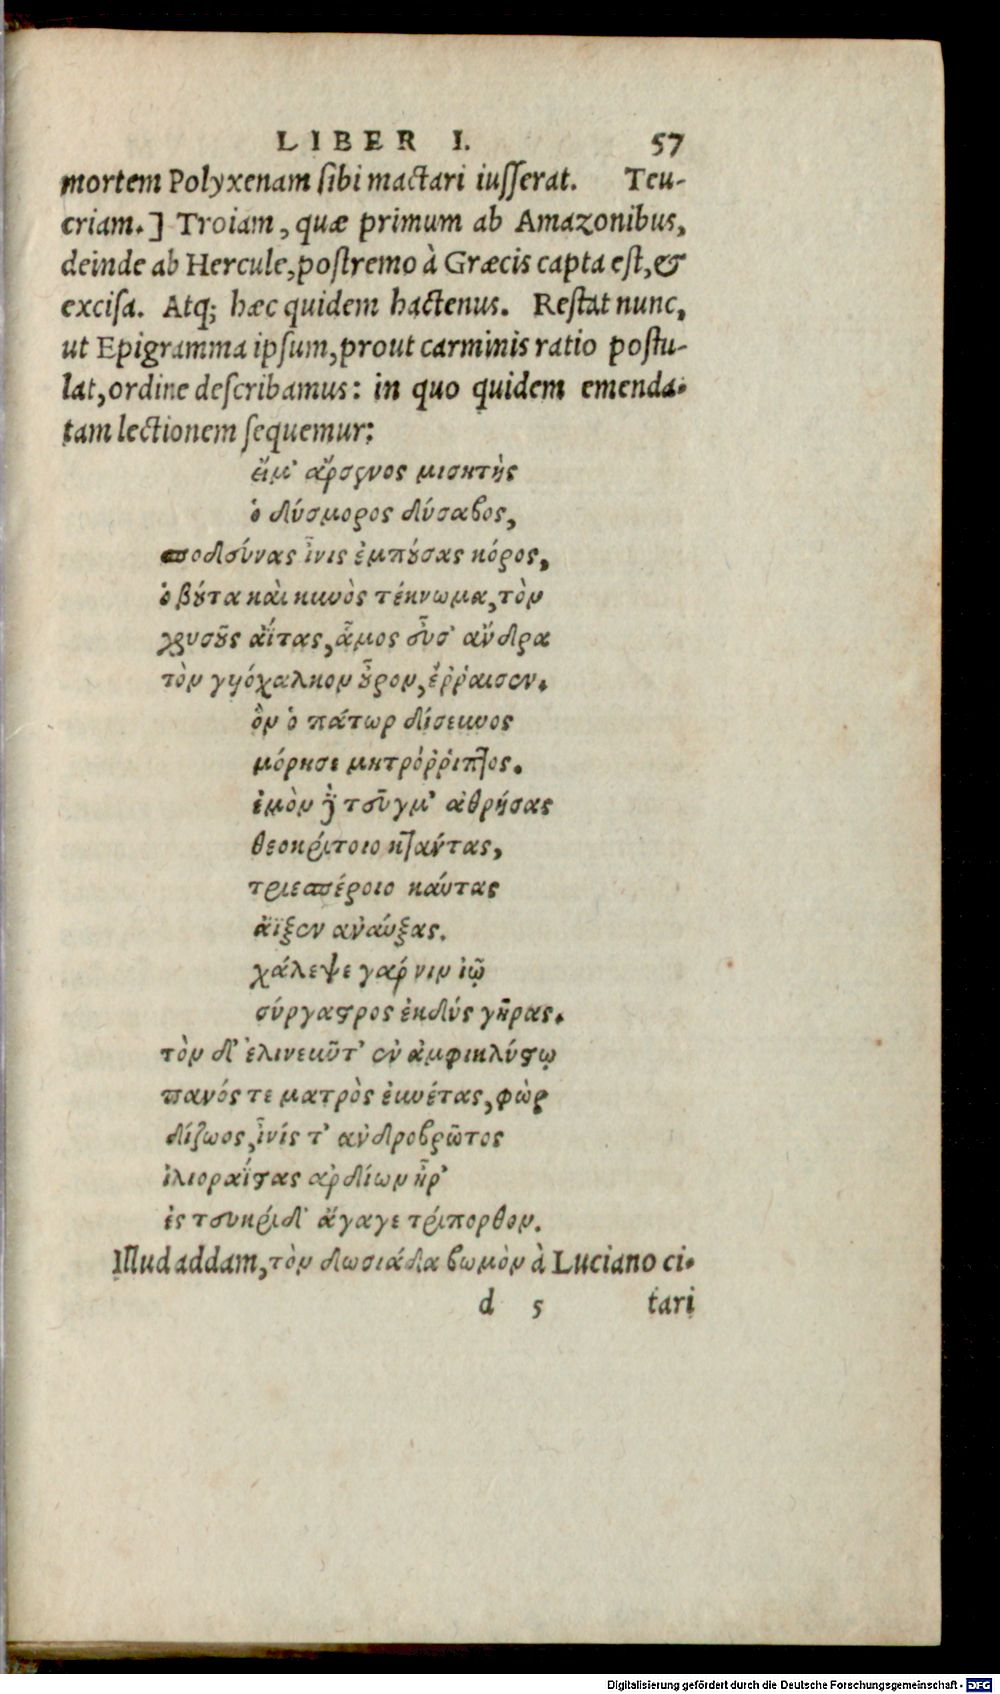 LIBER I. 57
mortem Polyxenam ſibi mactari iuſſerat. Teu-
criam.] Troiam, quæ primum ab Amazonibus,
deinde ab Hercule, poſtremo à Græcis capta eſt, &
exciſa. Atq; hæc quidem hactenus. Reſtat nunc,
ut Epigramma ipſum, prout carminis ratio poſtu-
lat, ordine deſcribamus: in quo quidem emenda-
tam lectionem ſequemur:
εἵμ' ἄρσενος μισητὴς
ὁ δύσμορος δύσαβος,
ποδσύνας ἶνις ἐμπούσας κόρος,
ὁ βούτα καὶ κυνὸς τέκνωμα, τὸν
χρυσοῦς ἀΐτας, ἆμος ἄνδρα
τὸν γυιόχαλκον οὖρον, ἔῤῥαισεν.
ὃν ὁ πάτωρ δίσευνος
μόρησε μητρόῤῥιπτος.
ἐμὸν δὲ τοῦγμ' ἀθρήσας
θεοκρίτοιο κταντας,
τριεσπέροιο καύτας
ἀΐξεν ἀναύξας.
χάλεψε γάρ νιν ἰῷ
σύργαστρος ἐκδὺς γῆρας.
τὸν δ' ἑλινεκῦτ' ἐν ἀμφικλύστῳ
πανός τε ματρὸς εὐνέτας, φὼρ
δίζωος, ἶνίς τ' ἀνδροβρῶτος
ἰλιοραΐστας ἀρδίων ἦρ'
ἐς τευκρίδ' ἄγαγε τρίπορθον.
Illud addam, τὸν δωσιάδα βωμὸν à Luciano ci-
d 5 tari
Digitalisierung gefördert durch die Deutsche Forschungsgemeinschaft - DFG